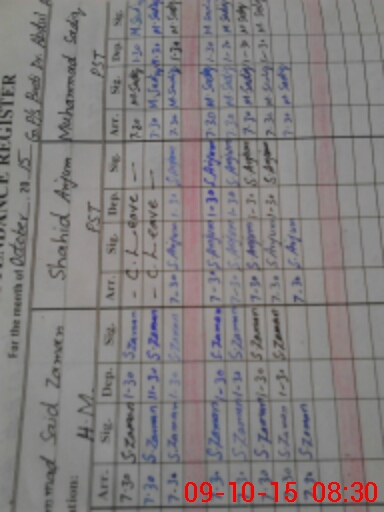 DANCE REGISTER
For the month of October 2015 G.P.S
mmad Said Zaman Shahid Anjum Muhammad Sadiq
H.M. PST PST
Arr. Sig. Dep. Sig. Arr. Sig. Dep. Sig. Arr. Sig. Dep. Sig.
7-30 S.Zaman 1-30 S.Zaman - C. Leave - 7-30 M Sadiq 1-30 M Sadiq
7-30 S.Zaman 1-30 S.Zaman - C. Leave - 7-30 M Sadiq 1-30 M Sadiq
7-30 S.Zaman 1-30 S.Zaman 7-30 S.Anjum 1-30 S.Anjum 7-30 M Sadiq 1-30 M Sadiq
7-30 S.Zaman 1-30 S.Zaman 7-30 S.Anjum 1-30 S.Anjum 7-30 M Sadiq 1-30 M Sadiq
7-30 S.Zaman 1-30 S.Zaman 7-30 S.Anjum 1-30 S.Anjum 7-30 M Sadiq 1-30 M Sadiq
7-30 S.Zaman 1-30 S.Zaman 7-30 S.Anjum 1-30 S.Anjum 7-30 M Sadiq 1-30 M Sadiq
7-30 S.Zaman 1-30 S.Zaman 7-30 S.Anjum 1-30 S.Anjum 7-30 M Sadiq 1-30 M Sadiq
7-30 S.Zaman 7-30 S.Anjum 7-30 M Sadiq
09-10-15 08:30